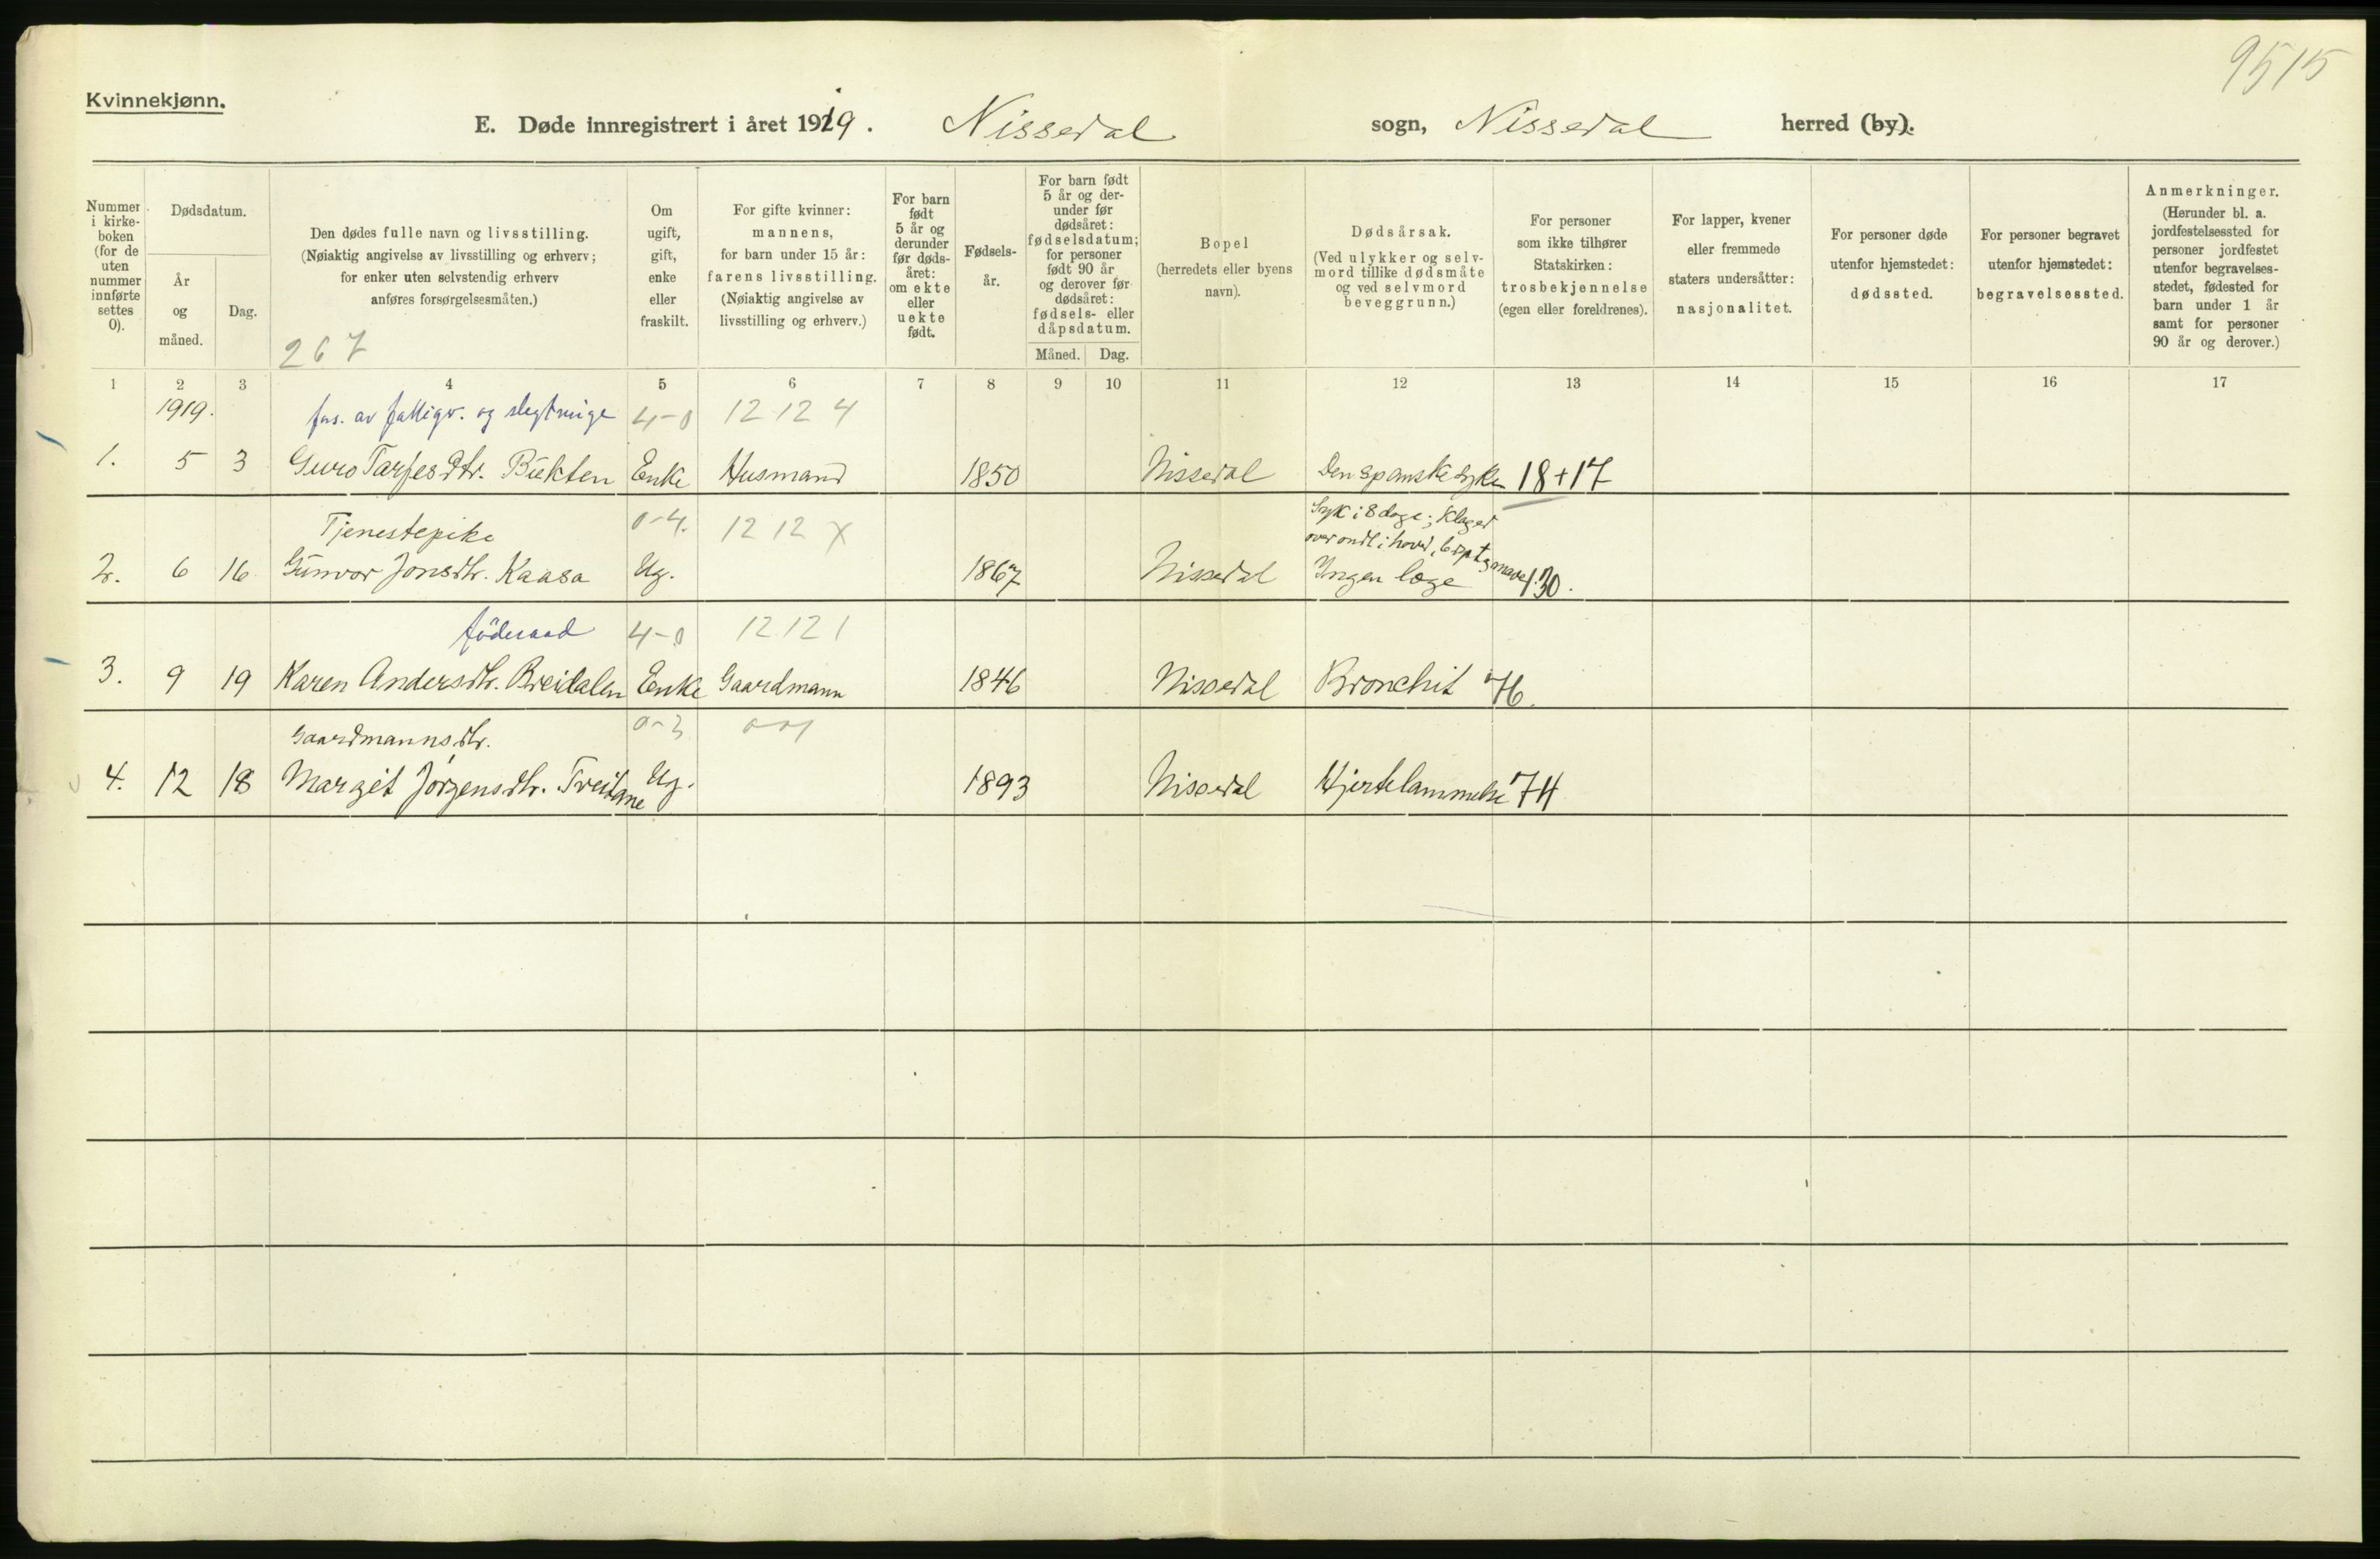 9515
Kvinnekjønn.
E. Døde innregistrert i året 1919. Nissedal sogn, Nissedal herred (by).
Nummer i kirke-boken (for de uten nummer innførte settes 0).
Dødsdatum.
År og måned.
Dag.
Den dødes fulle navn og livsstilling.
(Nøiaktig angivelse av livsstilling og erhverv;
for enker uten selvstendig erhverv
anføres forsørgelsesmåten.)
267
Om ugift, gift, enke eller fraskilt.
For gifte kvinner:
mannens,
for barn under 15 år:
farens livsstilling.
(Nøiaktig angivelse av
livsstilling og erhverv.)
For barn født 5 år og derunder før døds-året: om ekte eller uekte født.
Fødsels-år.
For barn født 5 år og der-under før dødsåret: fødselsdatum; for personer født 90 år og derover før dødsåret: fødsels- eller dåpsdatum.
Måned. Dag.
Bopel
(herredets eller byens
navn).
Dødsårsak.
(Ved ulykker og selv-
mord tillike dødsmåte
og ved selvmord
beveggrunn.)
For personer
som ikke tilhører
Statskirken:
trosbekjennelse
(egen eller foreldrenes).
For lapper, kvener
eller fremmede
staters undersåtter:
nasjonalitet.
For personer døde
utenfor hjemstedet:
dødssted.
For personer begravet
utenfor hjemstedet:
begravelsessted.
Anmerkninger.
(Herunder bl. a.
jordfestelsessted for
personer jordfestet
utenfor begravelses-
stedet, fødested for
barn under 1 år
samt for personer
90 år og derover.)
1 2 3 4 5 6 7 8 9 10 11 12 13 14 15 16 17
1919. fors. av fattigv. og slegtninge 4-0 12 12 4
1. 5 3 Guro Tarjesdtr. Bukten Enke Husmand 1850 Nissedal Den spanske syke 18+17
Tjenestepike 0-4. 12 12 X Syk i 8 dage; klaget
over ondt i hoved, bryst og mave
2. 6 16 Gunvor Jonsdtr. Kaasa Ug. 1867 Nissedal Ingen læge 130.
föderaad 4-0 12 12 1
3. 9 19 Karen Andersdtr. Breidalen Enke Gaardmann 1846 Nissedal Bronchit 76.
Gaardmannsdtr. 0-3
4. 12 18 Margit Jörgensdtr. Treitane Ug. 1893 Nissedal Hjertelammelse 74